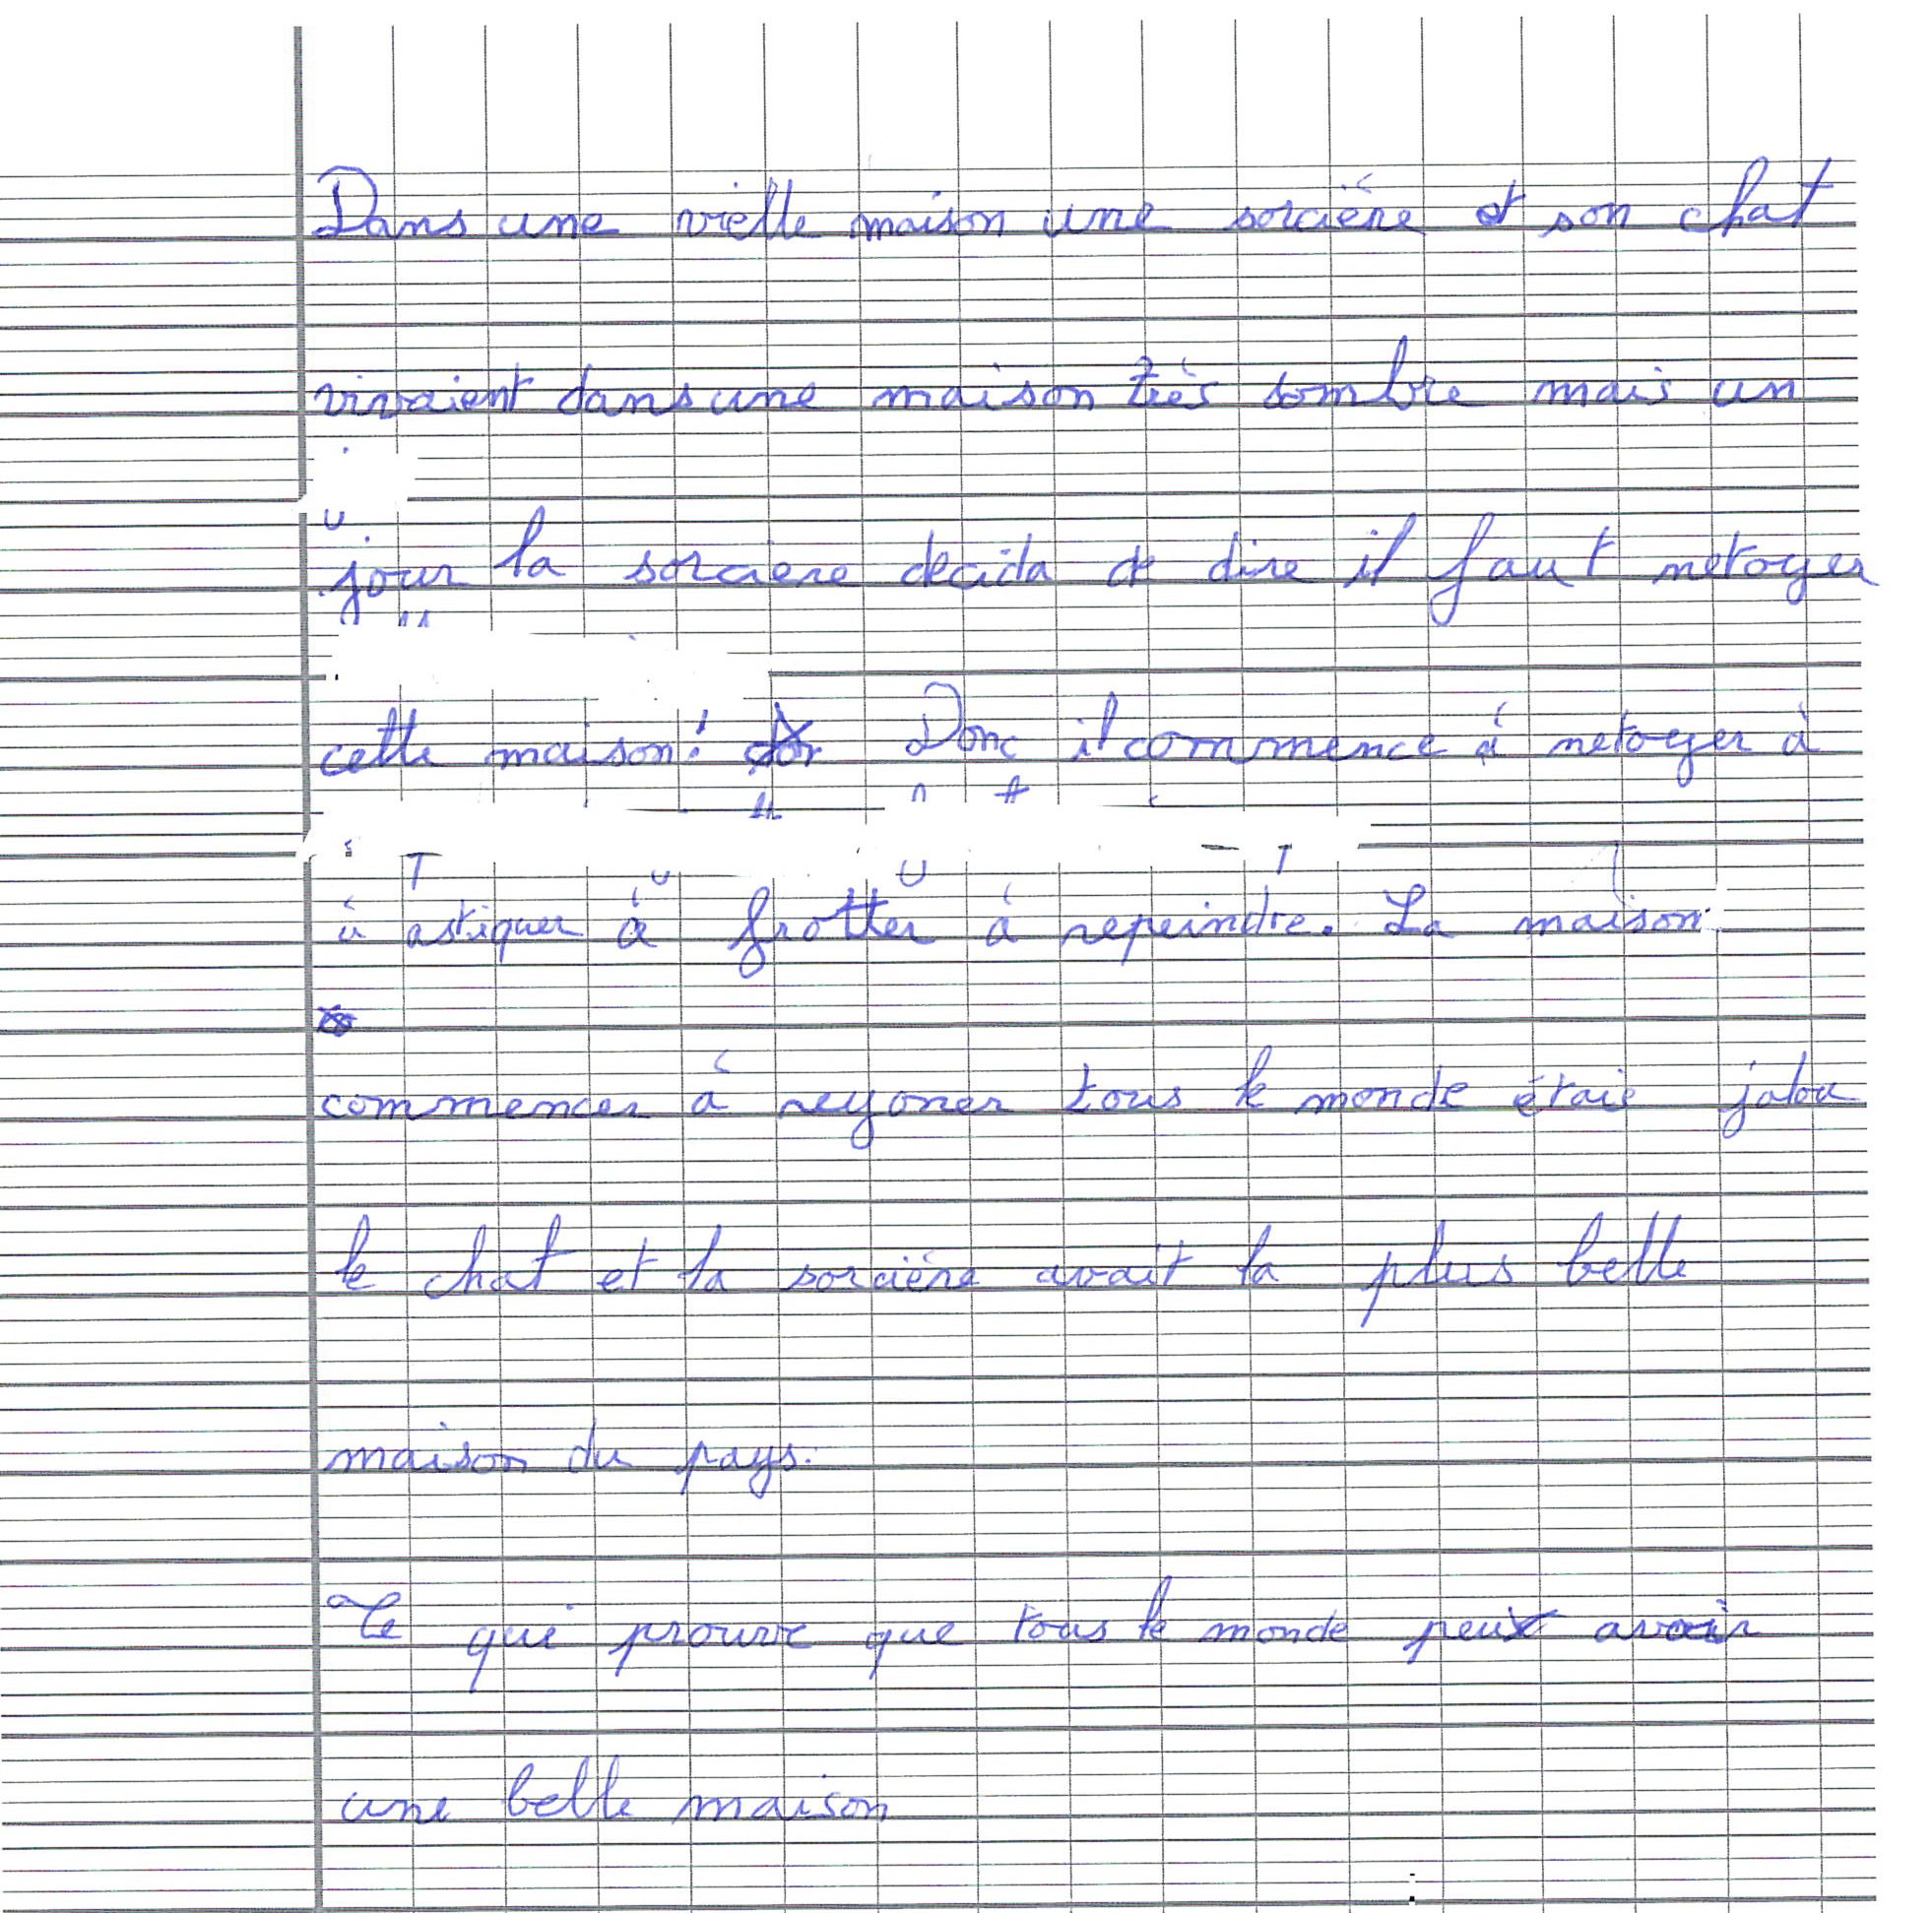 Dans une vielle maison une sorcière et son chat
vivaient dans une maison très sombre mais un
jour la sorciere decida de dire il faut netoyer
cette maison! Donc il commence à netoyer à
à astiquer à frotter à repeindre. La maison
commencer à reyoner tous le monde étais jalou
le chat et la sorcière avait la plus belle
maison du pays.
Ce qui prouve que tous le monde peux avoir
une belle maison